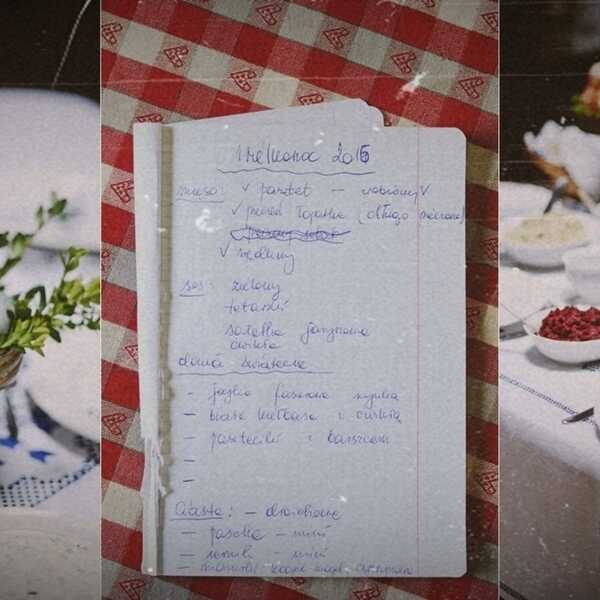 Wielkanoc 2015
mięso: √ pasztet – robiony √
√ (długo pieczone)
√ wędliny
sos: zielony
tatarski
sałatka jarzynowa
ćwikła
dania świąteczne
– jajka faszerowane
– biała kiełbasa z ćwikłą
– paszteciki z barszczem
–
–
Ciasta: – drożdżowe
– pascha – mini
– serniki – mini
– mazurki